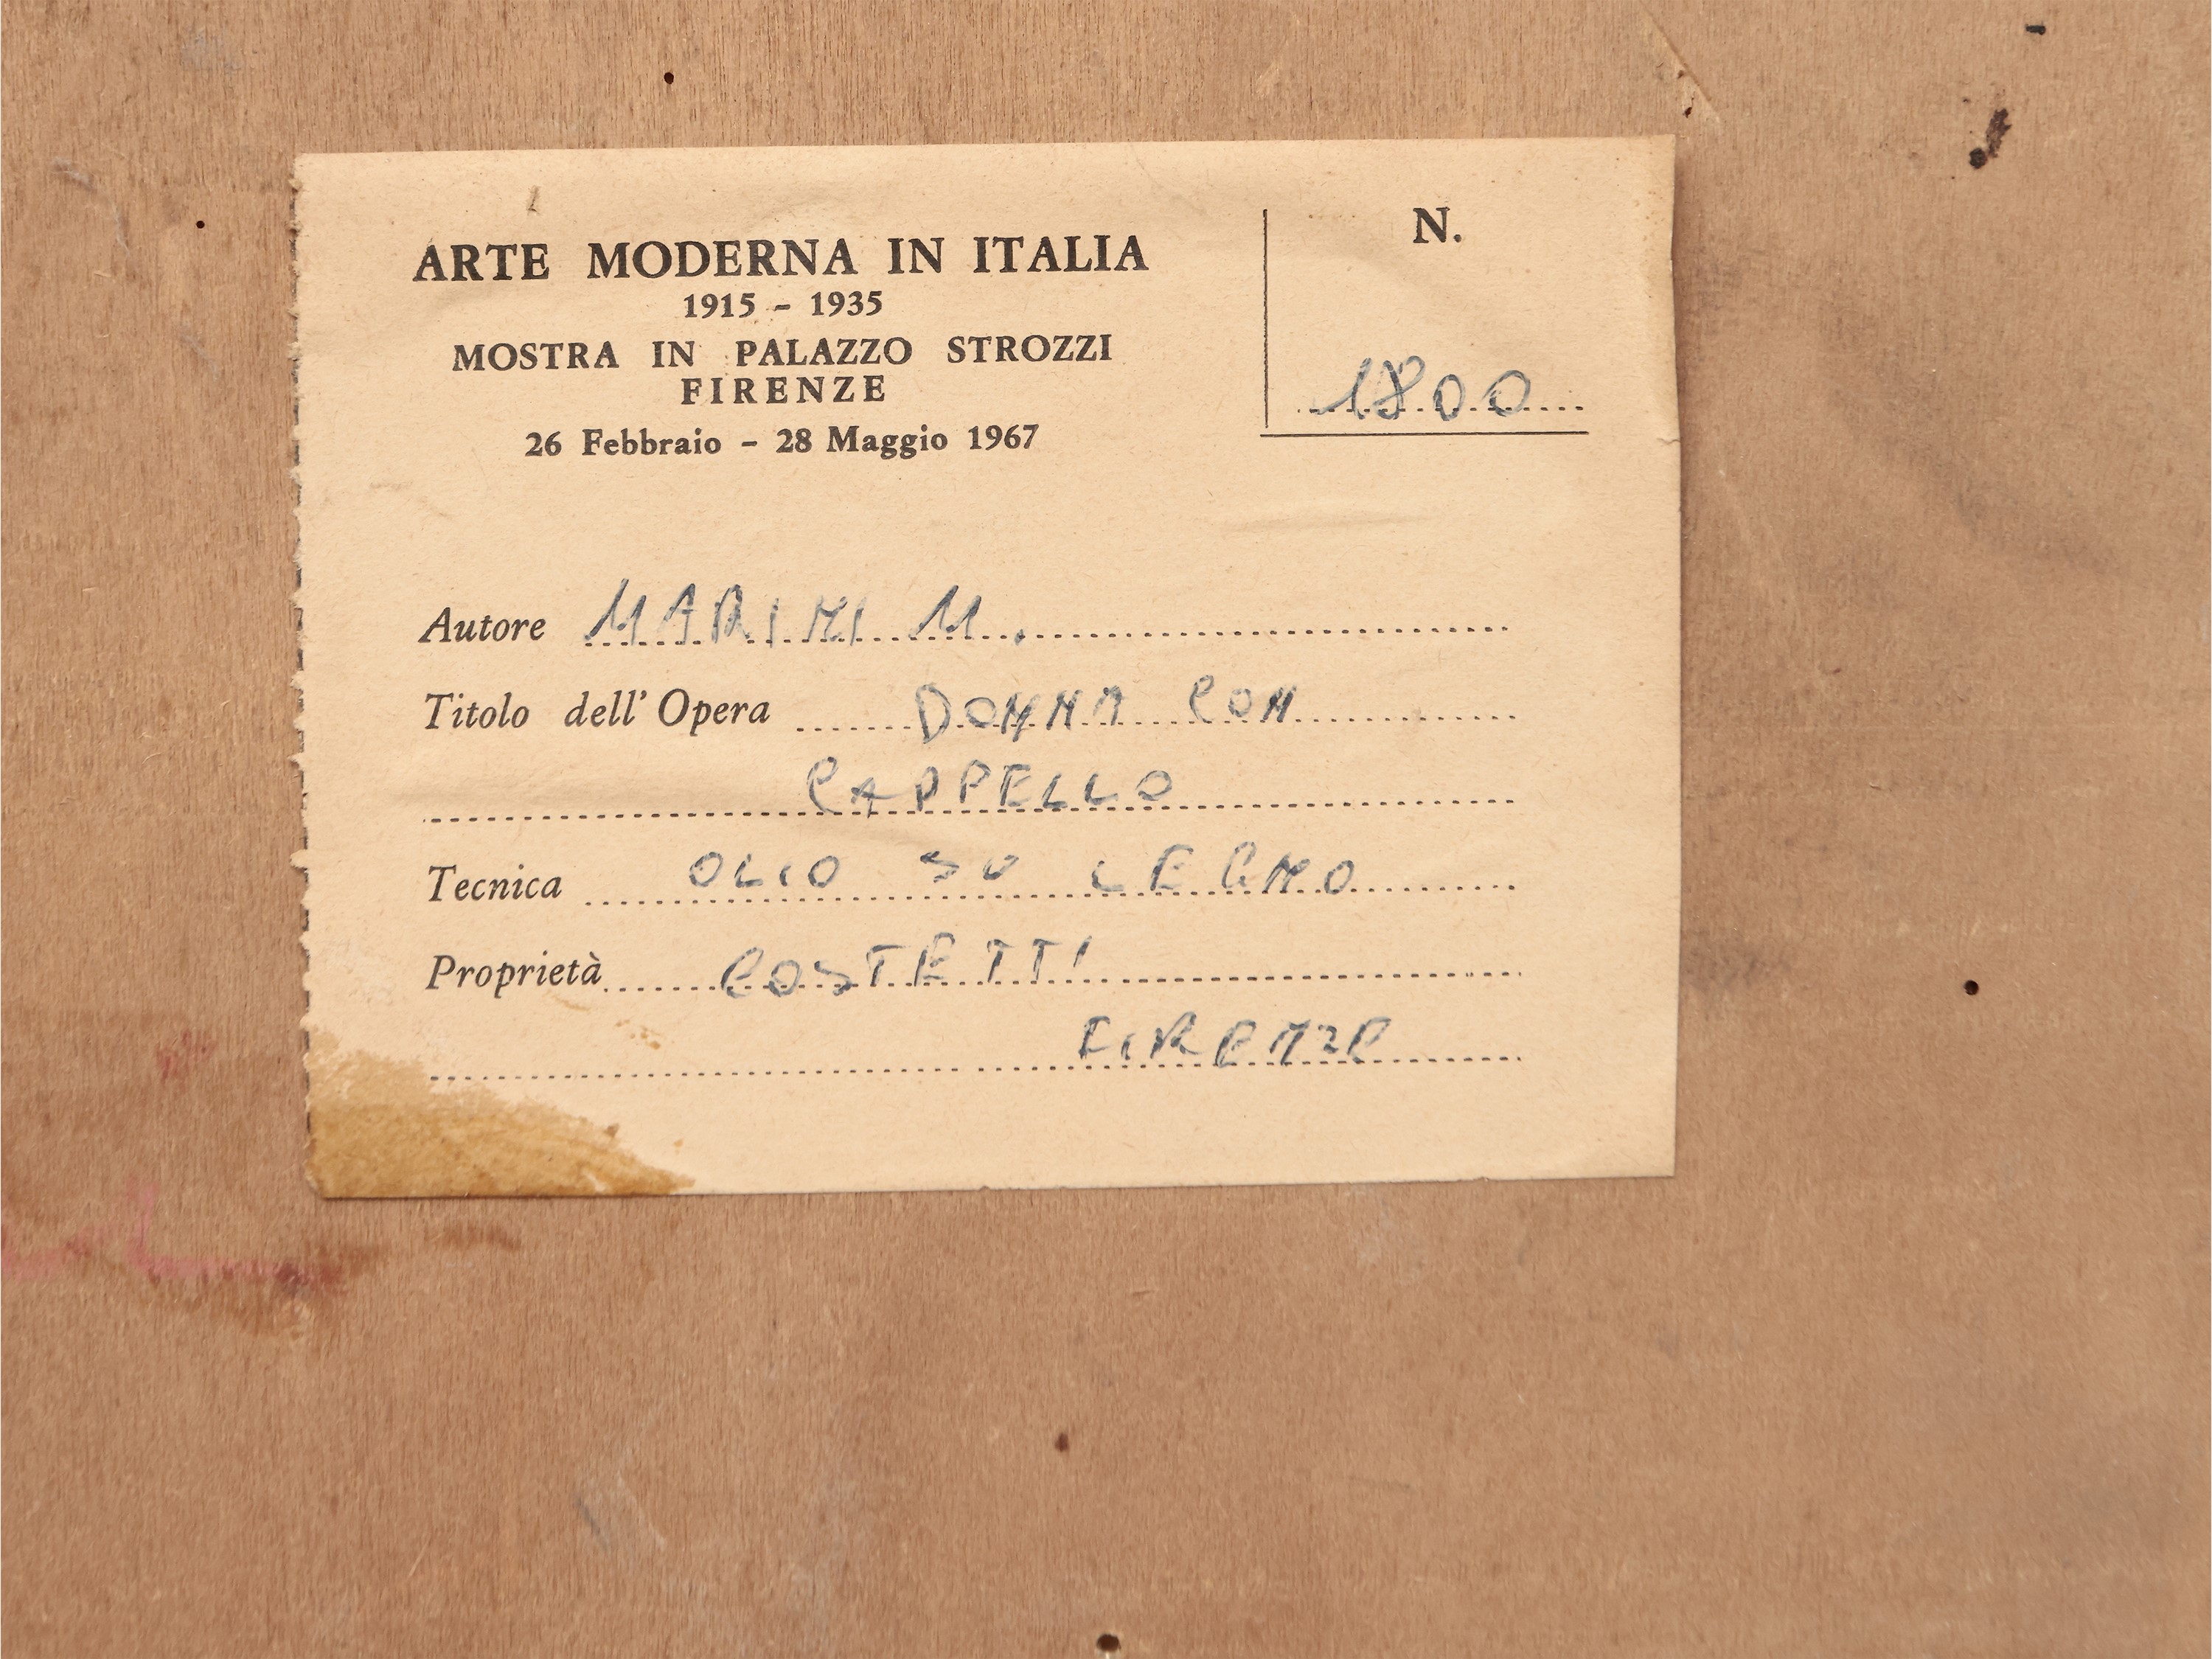 ARTE MODERNA IN ITALIA
1915 - 1935
MOSTRA IN PALAZZO STROZZI
FIRENZE
26 Febbraio - 28 Maggio 1967
N.
1800
Autore MARINI M.
Titolo dell'Opera DONNA CON
CAPPELLO
Tecnica OLIO SU LEGNO
Proprietà COSTETTI
FIRENZE